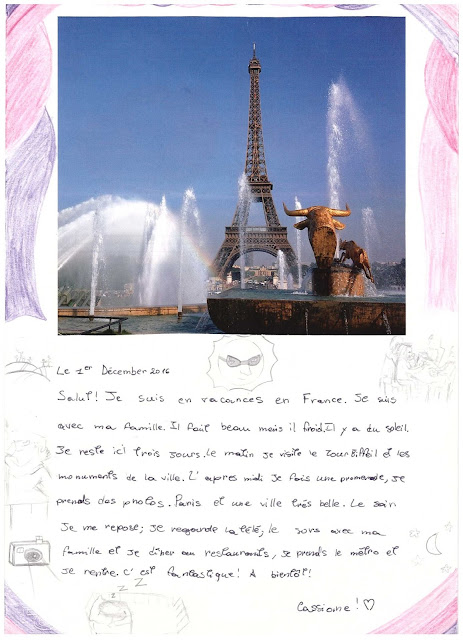 Le 1er Décembre 2016
Salut! Je suis en vacances en France. Je suis
avec ma famille. Il fait beau mais il froid. Il y a du soleil.
Je reste ici trois jours. Le matin je visite le Tour Eiffeil et les
monuments de la ville. L'apres midi je fais une promenade, je
prends des photos. Paris et une ville très belle. Le soir
Je me repose; je reagarde la télé; je sors avec ma
famille et je dîner au restaurants, je prends le métro et
je rentre. C'est fantastique! A bientôt!
Cassiome! ♡
z z z